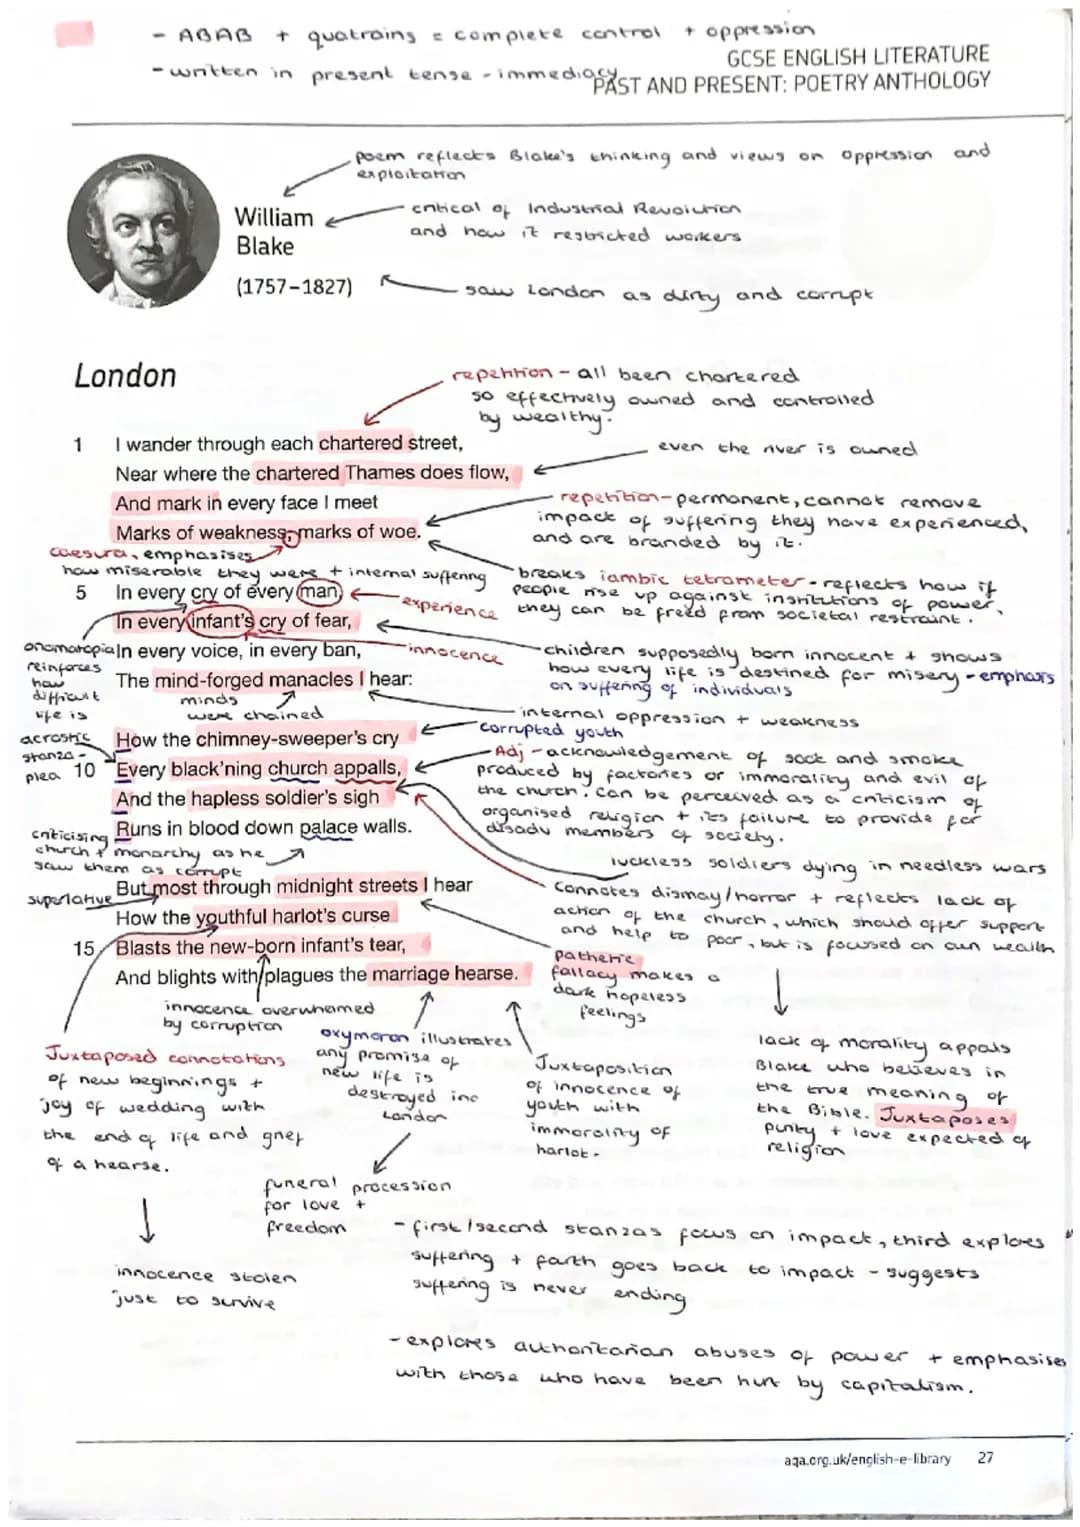 - ABAB + quatrains = complete control + oppression
- written in present tense - immediacy
GCSE ENGLISH LITERATURE
PAST AND PRESENT: POETRY ANTHOLOGY
poem reflects Blake's thinking and views on oppression and
exploitation
William
Blake
(1757–1827)
critical of Industrial Revolution
and how it restricted workers
saw London as dirty and corrupt
London
repetition - all been chartered
so effectively owned and controlled
by wealthy.
1 I wander through each chartered street,
even the river is owned
Near where the chartered Thames does flow,
And mark in every face I meet
Marks of weakness, marks of woe.
repetition - permanent, cannot remove
impact of suffering they have experienced,
and are branded by it.
caesura, emphasises
how miserable they were + internal suffering
breaks iambic tetrameter - reflects how if
people rise up against institutions of power,
they can be freed from societal restraint.
5 In every cry of every man,
experience
In every infant's cry of fear,
In every voice, in every ban,
innocence
The mind-forged manacles I hear:
onomatopia
reinforces
how
difficult
life is
children supposedly born innocent + shows
how every life is destined for misery - emphasis
on suffering of individuals
minds
were chained
internal oppression + weakness
corrupted youth
acrostic
stanza -
plea
How the chimney-sweeper's cry
10 Every black'ning church appalls,
And the hapless soldier's sigh
Runs in blood down palace walls.
Adj - acknowledgement of soot and smoke
produced by factories or immorality and evil of
the church. Can be perceived as a criticism of
organised religion + its failure to provide for
disadv members of society.
criticising
church + monarchy as he
saw them as corrupt
luckless soldiers dying in needless wars
superlative
But most through midnight streets I hear
How the youthful harlot's curse
15 Blasts the new-born infant's tear,
And blights with plagues the marriage hearse.
connotes dismay/horror + reflects lack of
action of the church, which should offer support
and help to poor, but is focused on own wealth
pathetic
fallacy makes a
dark hopeless
feelings
innocence overwhemed
by corruption
Juxtaposed connotations
of new beginnings +
joy of wedding with
the end of life and grief
of a hearse.
innocence stolen
just to survive
oxymoron illustrates
any promise of
new life is
destroyed inc
London
funeral procession
for love +
freedom
Juxtaposition
of innocence of
youth with
immorality of
harlot.
lack of morality appals
Blake who believes in
the true meaning of
the Bible. Juxtaposes
purity + love expected of
religion
- first/second stanzas focus on impact, third explores
suffering + forth goes back to impact - suggests
suffering is never ending
- explores authoritarian abuses of power + emphasises
with those who have been hurt by capitalism.
aqa.org.uk/english-e-library 27